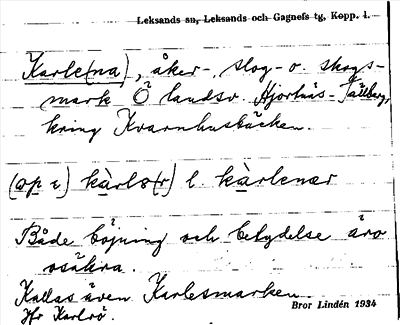 Leksands sn, Leksands och Gagnefs tg, Kopp. l.
Karle(na), åker-, slog- o. skogs-
mark Ö landsv. Hjortnäs-Tällberg,
kring Kvarnhusbäcken.
(op i) kàrlo(r) l. kàrlenar
Både böjning och betydelse äro
osäkra.
Kallas även Karlesmarken.
Bror Lindén 1934
Jfr Karlrö.